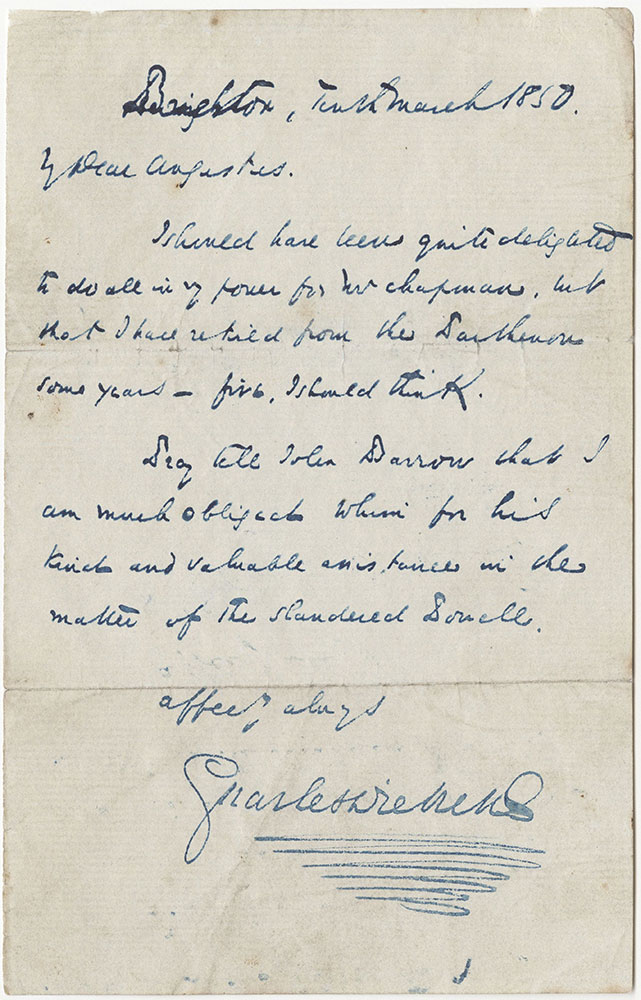 Brighton, Tenth March 1850.
My Dear Augustus.
I should have been quite delighted
to do all in my power for Mr Chapman, but
that I have retired from the Parthenon
some years – five, I should think.
Pray tell John Barrow that I
am much obliged to him for his
kind and valuable assistance in the
matter of the slandered
affecy always
Charles Dickens